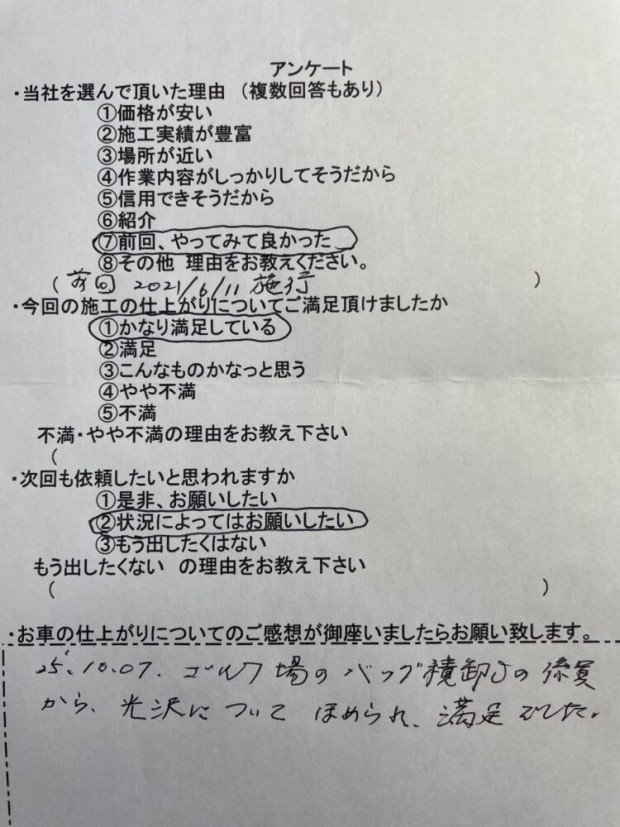 アンケート
・当社を選んで頂いた理由 (複数回答もあり)
①価格が安い
②施工実績が豊富
③場所が近い
④作業内容がしっかりしてそうだから
⑤信用できそうだから
⑥紹介
⑦前回、やってみて良かった
⑧その他 理由をお教えください。
(前回 2021/6/11 施行 )
・今回の施工の仕上がりについてご満足頂けましたか
①かなり満足している
②満足
③こんなものかなっと思う
④やや不満
⑤不満
不満・やや不満の理由をお教え下さい
(
・次回も依頼したいと思われますか
①是非、お願いしたい
②状況によってはお願いしたい
③もう出したくはない
もう出したくない の理由をお教え下さい
( )
・お車の仕上がりについてのご感想が御座いましたらお願い致します。
25'.10.07. ゴルフ場のバッグ積卸しの係員
から、光沢について ほめられ、満足でした。